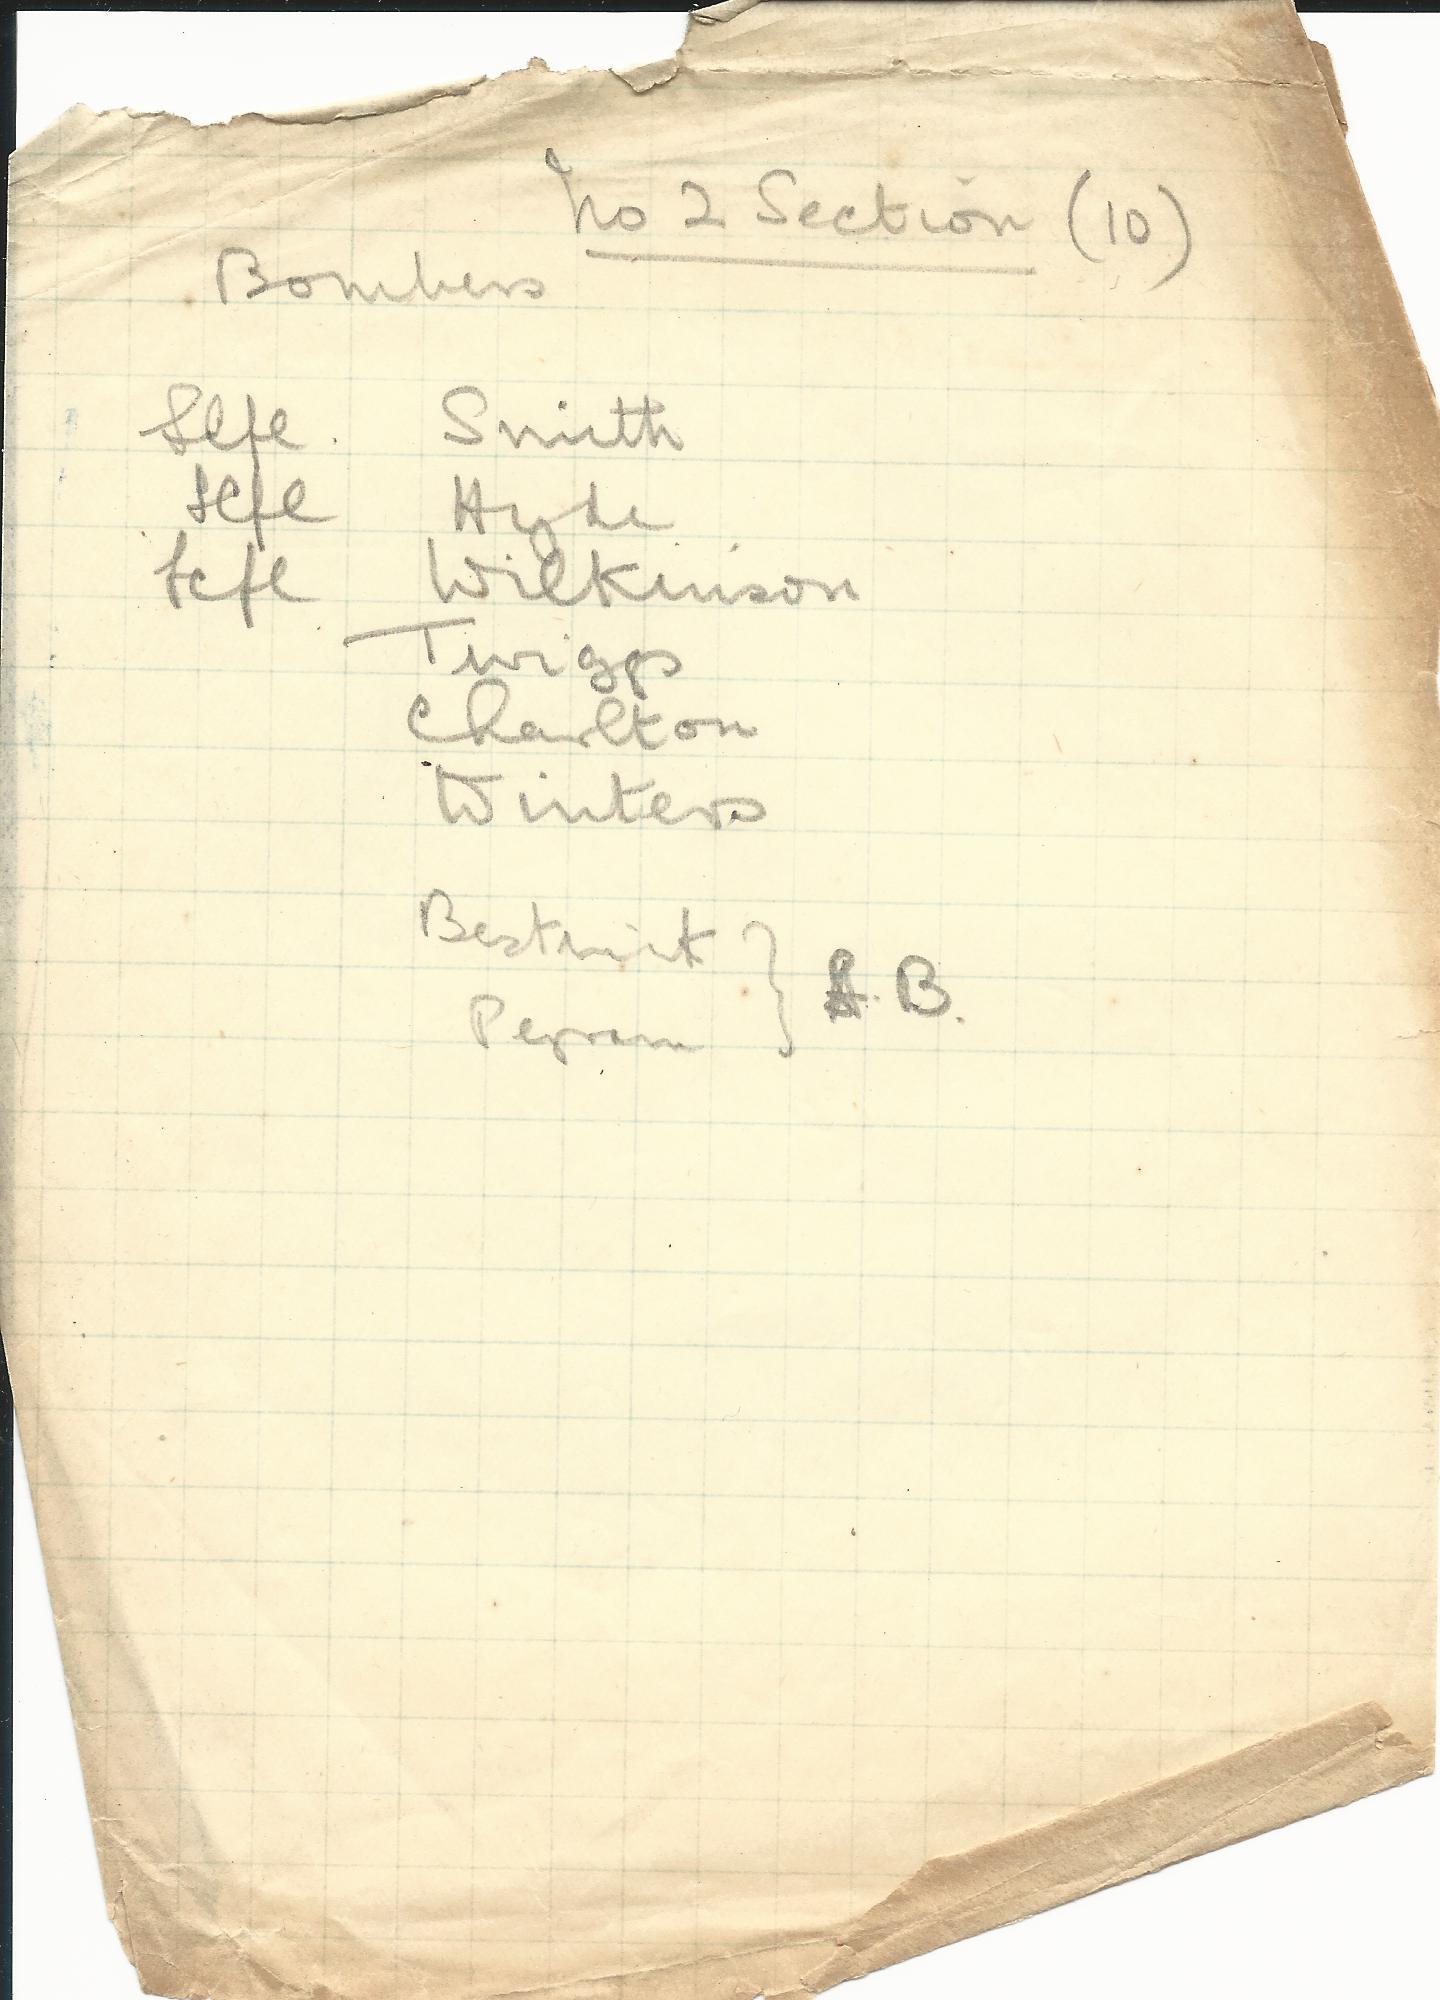 No 2 Section (10)
Bombers
Smith
Hyde
Wilkinson
Twiggs
Charlton
Winters
Bestwick
Pegram } A.B.